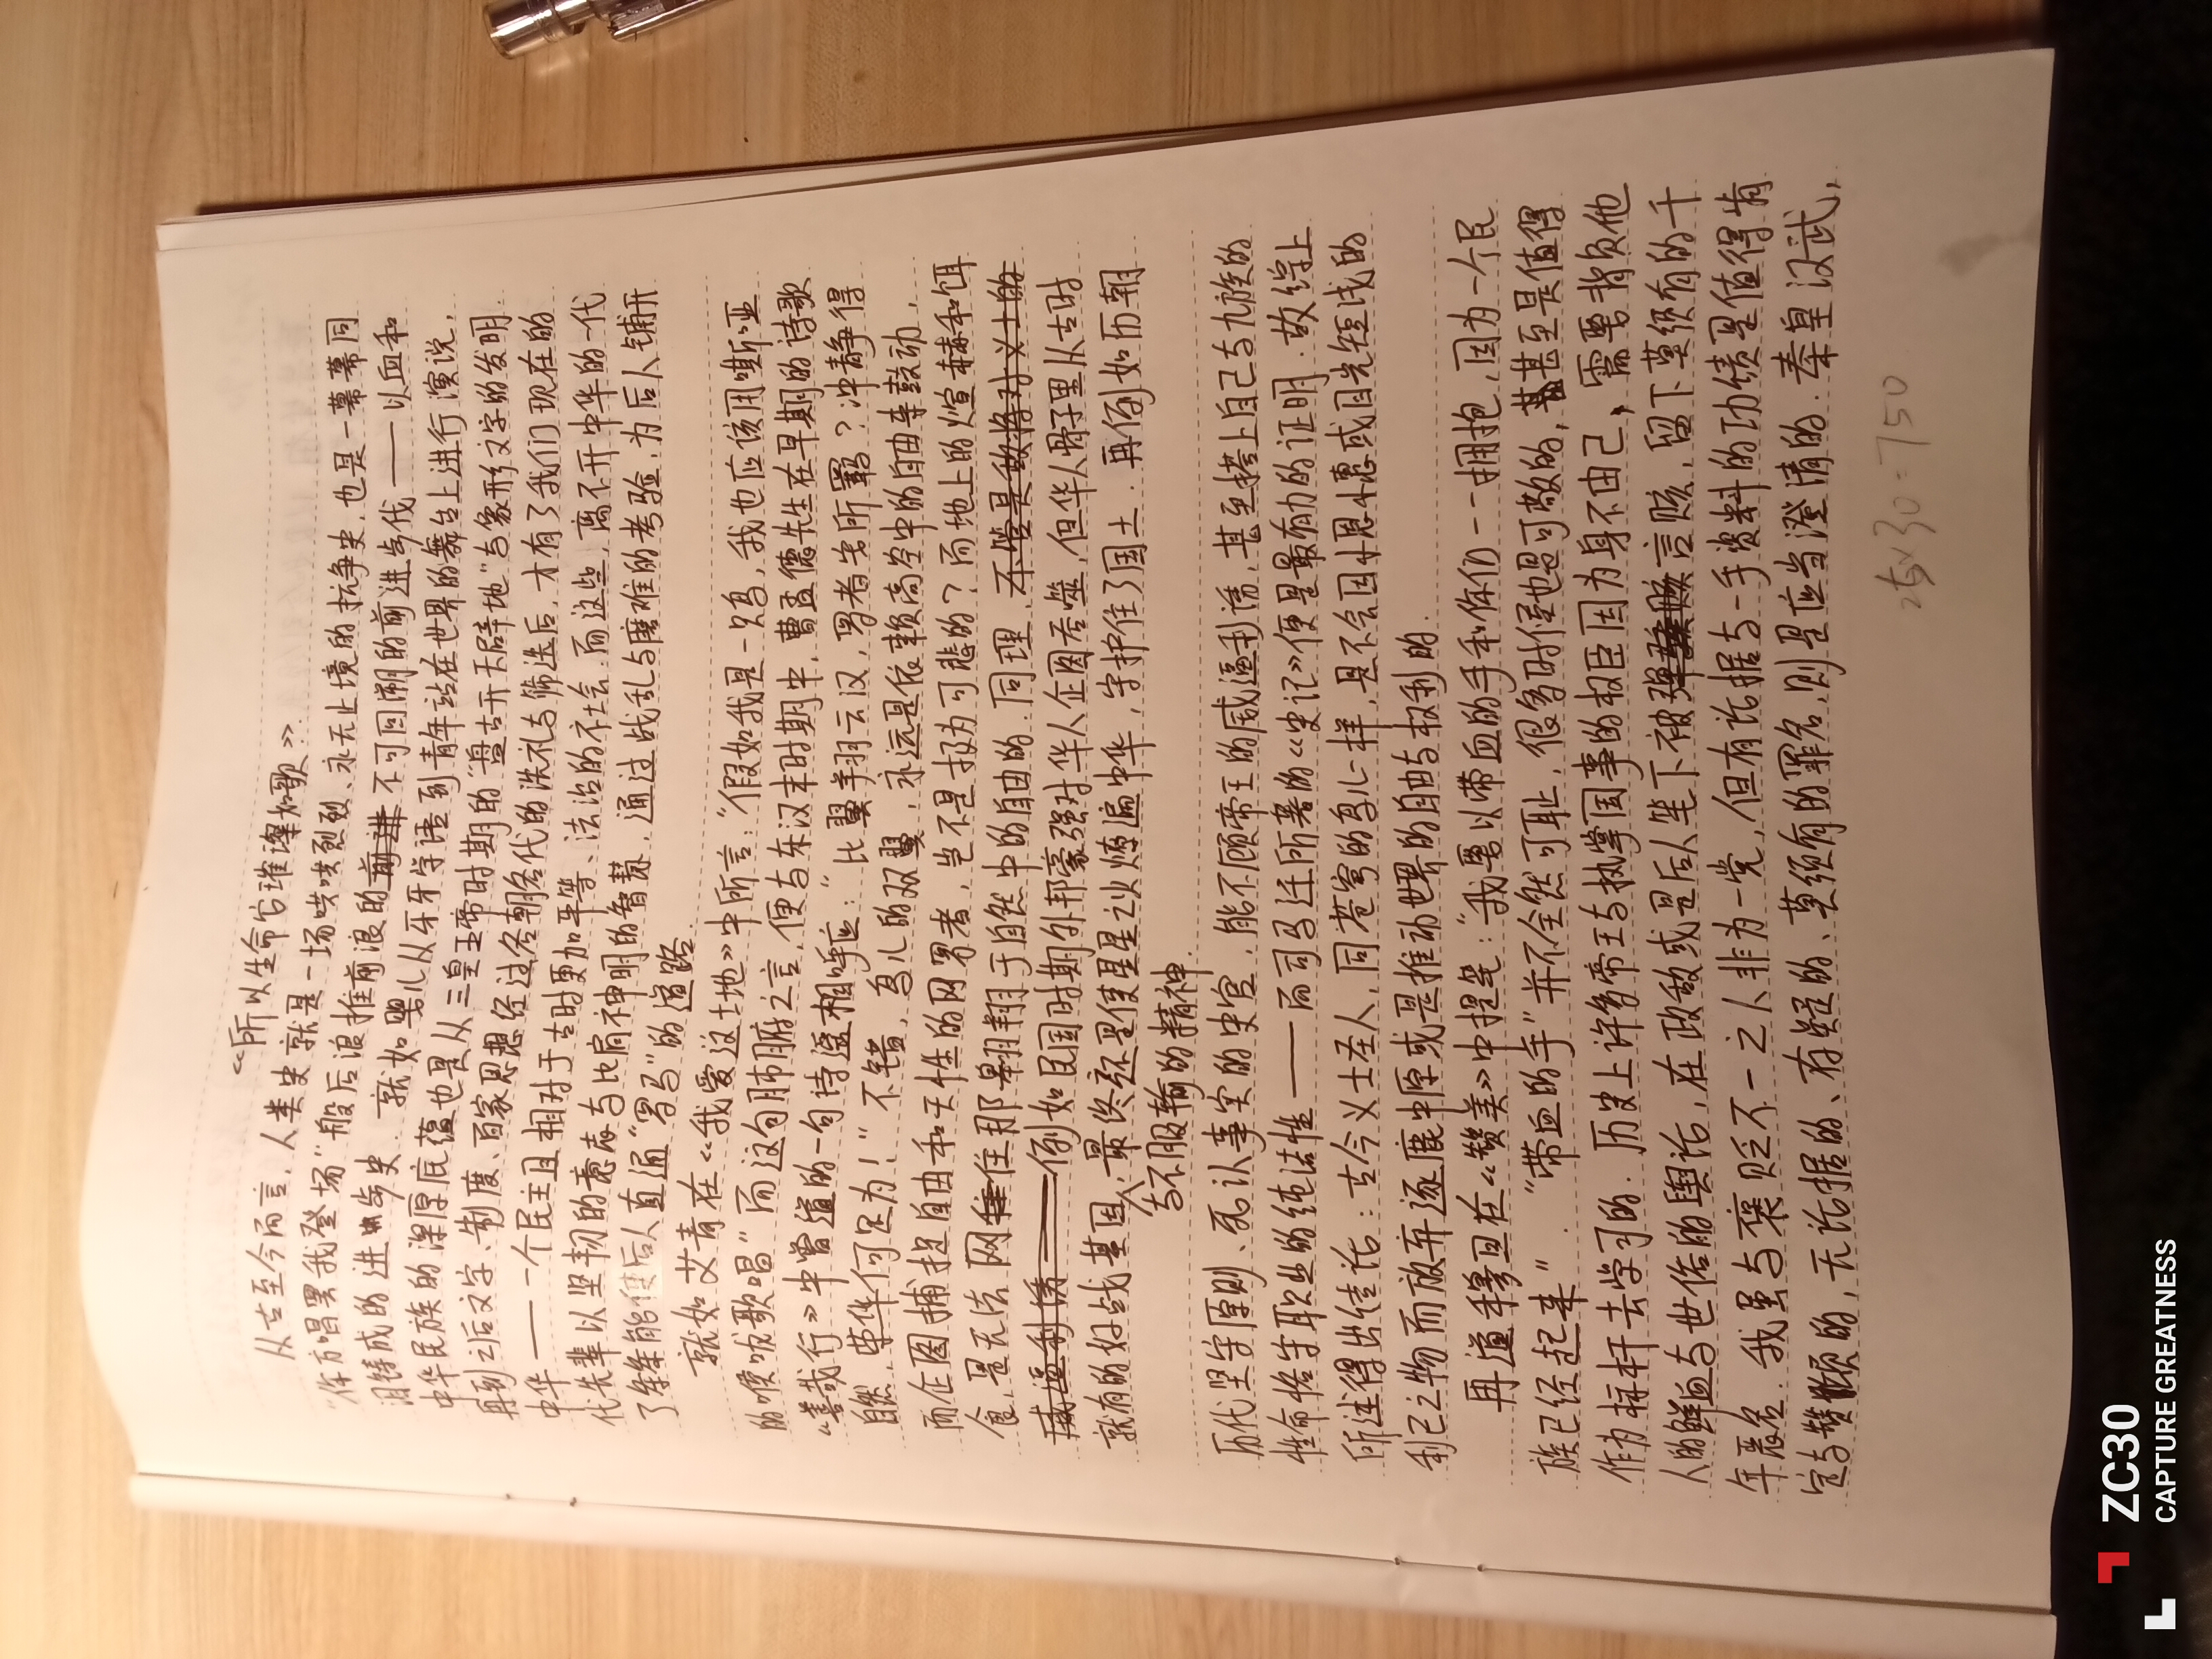 《所以生命它璀璨如歌》
从古至今而言，人类史就是一场哄哄烈烈、永无止境的抗争史，也是一幕幕同
“你方唱罢我登场”般后浪推前浪的不可回溯的前进步代——以血和
泪铸成的进步史．就如婴儿从牙牙学语到青年站在世界的舞台上进行演说，
中华民族的深厚底蕴也是从三皇五帝时期的“盘古开天辟地”与象形文字的发明
再到之后文字、制度、百家思想经过各朝各代的洗礼与筛选后，才有了我们现在的
中华——一个民主且相对于古时更加平等、法治的社会．而这些，离不开中华的一代
代先辈以坚韧的意志与比肩神明的智慧，通过战乱与磨难的考验，为后人铺开
了条条能使后人直通“罗马”的道路．
就如艾青在《我爱这土地》中所言：“假如我是一只鸟，我也应该用嘶哑
的喉咙歌唱”而这句肺腑之言，便与东汉末时期中，曹孟德先生在早期的诗歌
《善哉行》中曾道的一句诗遥相呼应：“比翼翔云汉，罗者安所羁？冲静得
自然，荣华何足为！”不错，鸟儿的双翼，永远是依赖高空中的自由来鼓动，
而企图捕捉自由和天性的网罗者，岂不是极为可悲的？而地上的煊赫和饵
食，是无法网住那翱翔于自然中的自由的．同理，不管是敌将对义士的
威逼利诱——例如民国时期外邦豪强对华人企图吞噬，但华人骨子里从古时
就有的好战基因与不服输的精神，最终还是使星星之火燎遍中华，守护住了国土．再例如历朝
历代坚守原则、死认事实的史官，能不顾帝王的威逼利诱，甚至搭上自己与九族的
性命恪守职业的纯洁性——而司马迁所著的《史记》便是最有力的证明．故综上
所述得出结论：古今义士圣人，同苍穹的鸟儿一样，是不会因小恩小惠或目光短浅的
利己之物而放弃逐鹿中原或是推动世界的自由与权利的．
再道穆旦在《赞美》中提笔：“我要以带血的手和你们一一拥抱，因为一个民
族已经起来”．“带血的手”并不全然可耻，很多时侯也是可敬的，甚至是值得
作为标杆去学习的．历史上许多帝王与执掌国事的权臣因为身不由己，需要背负他
人的鲜血与世俗的舆论，在政敌或是后人笔下被言贬，留下莫须有的千
年恶名．我虽与褒贬不一之人非为一党，但有论据与一手资料的功绩是值得肯
定与赞颂的，无论据的、存疑的、莫须有的罪名，则是应当澄清的．秦皇汉武，
25×30=750
ZC30
CAPTURE GREATNESS